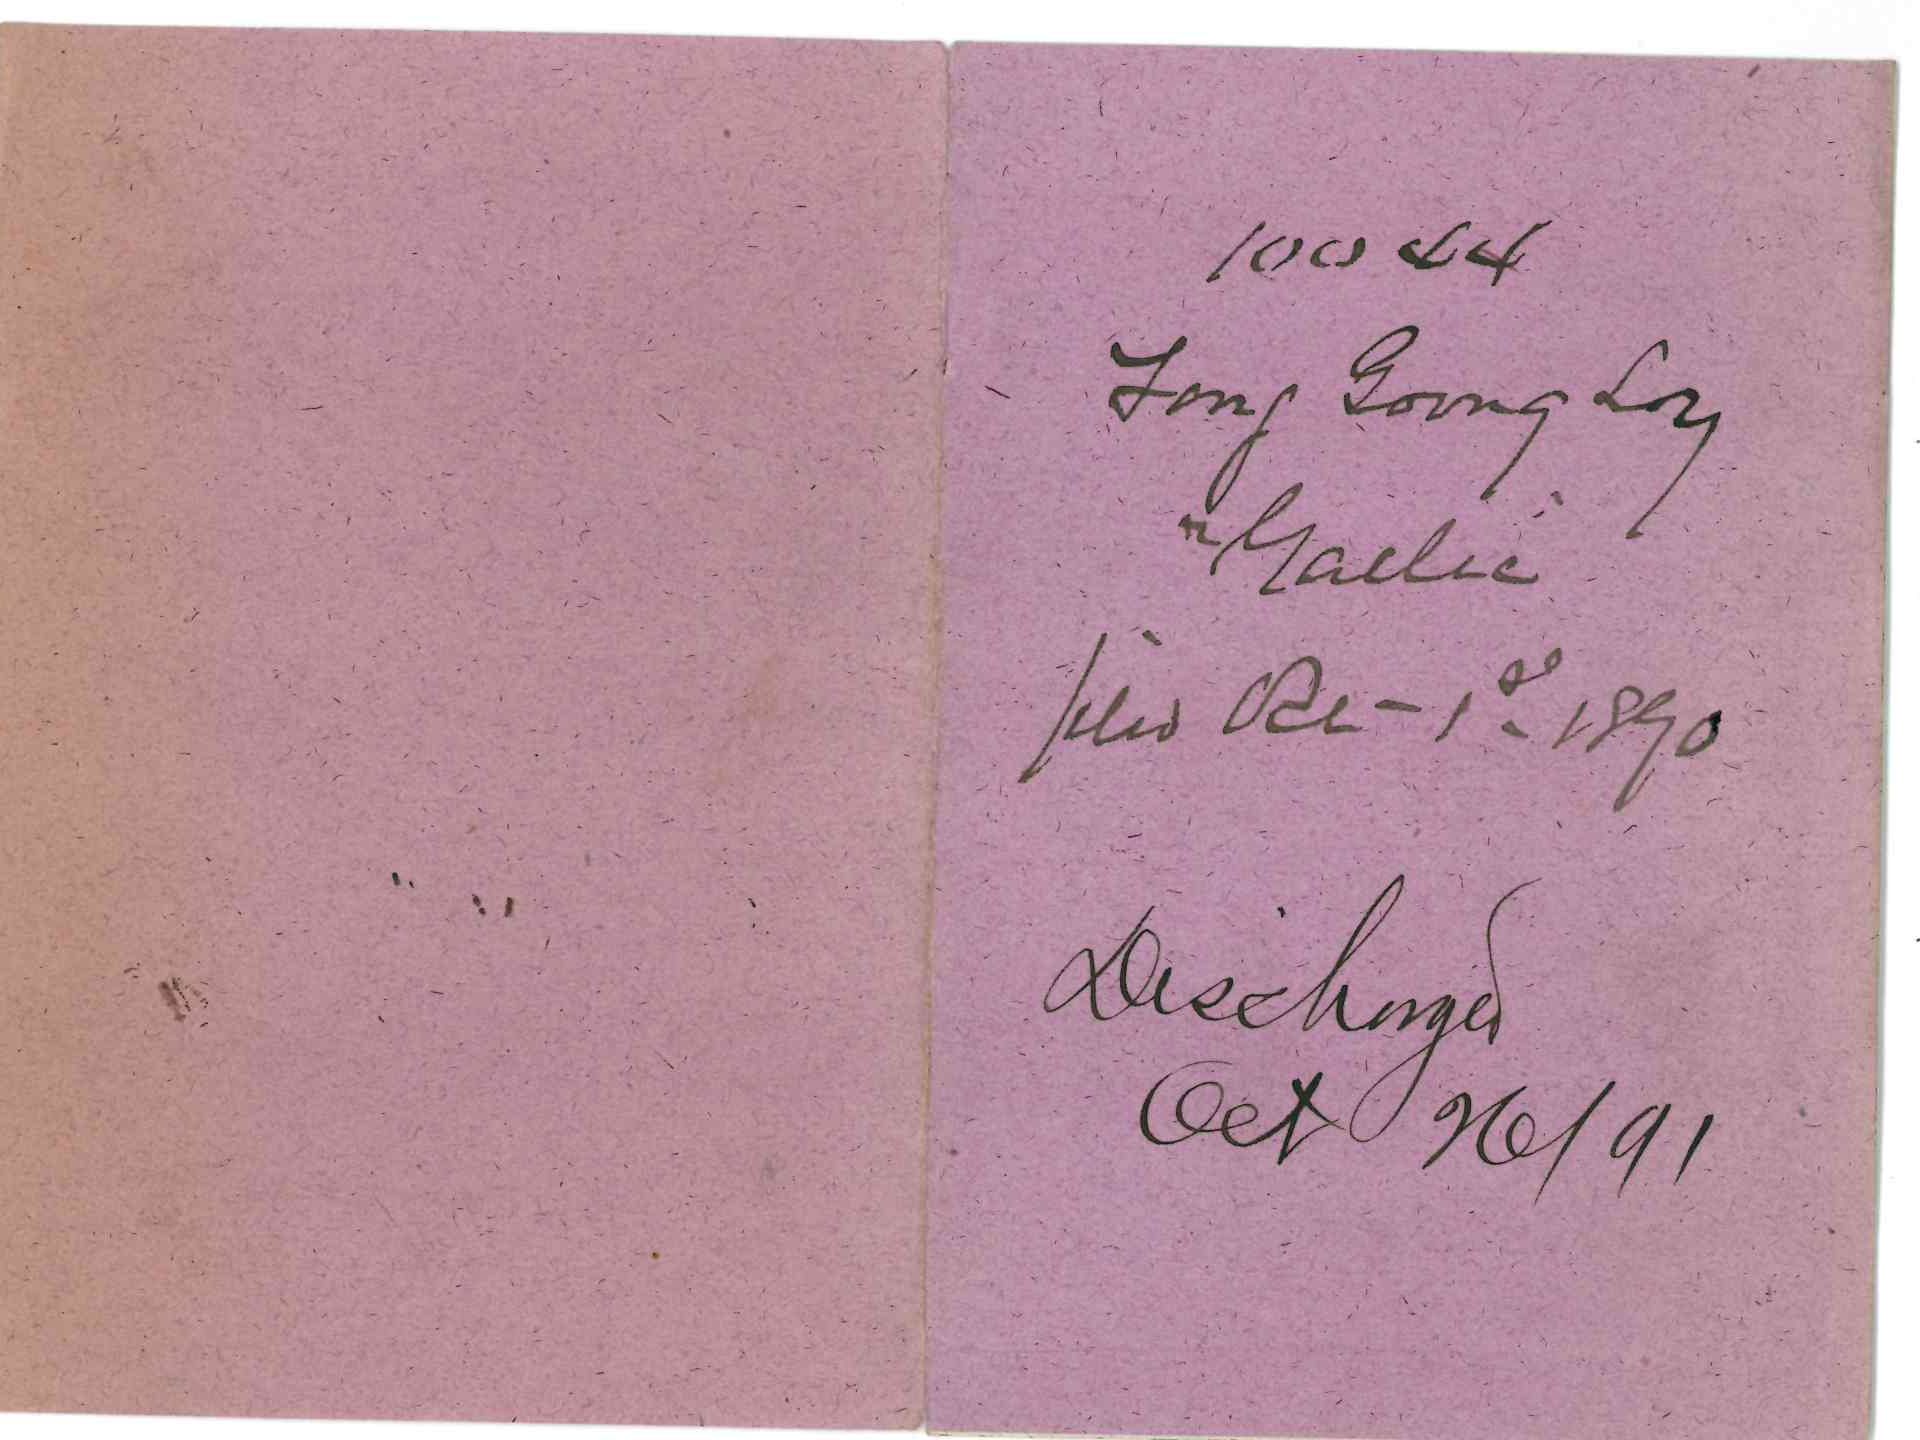 10044
Fong Goong Loy
"Gaelic"
filed Oct - 1st. 1890
Discharged
Oct 26/91